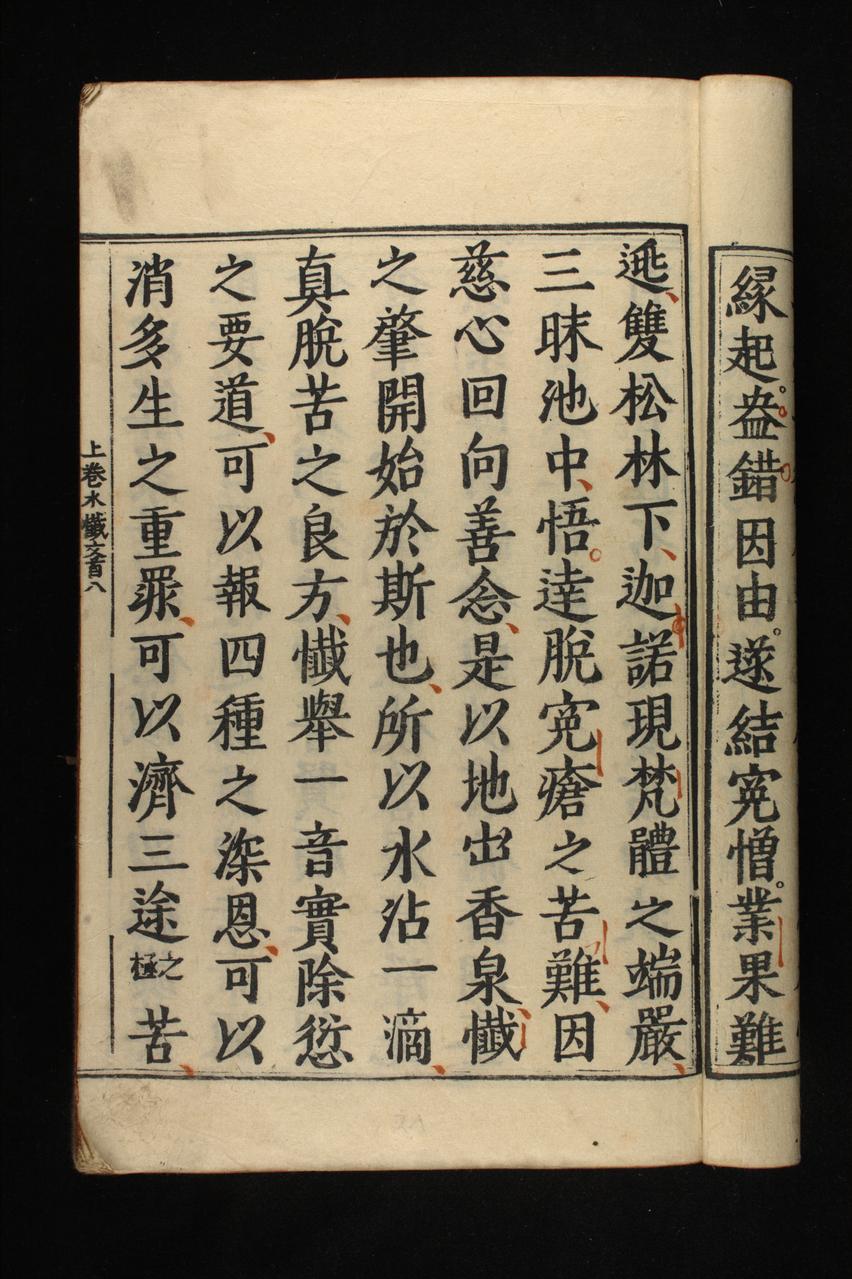 縁起盎錯因由遂結𡨚憎業果難
逃雙松林下迦諾現梵體之端嚴
三昧池中悟達脫𡨚瘡之苦難因
慈心回向善念是以地出香泉懺
之肇開始於斯也所以水沾一滴
真脫苦之良方懺舉一音實除愆
之要道可以報四種之深恩可以
消多生之重罪可以濟三途之極苦
上卷水懺文首八